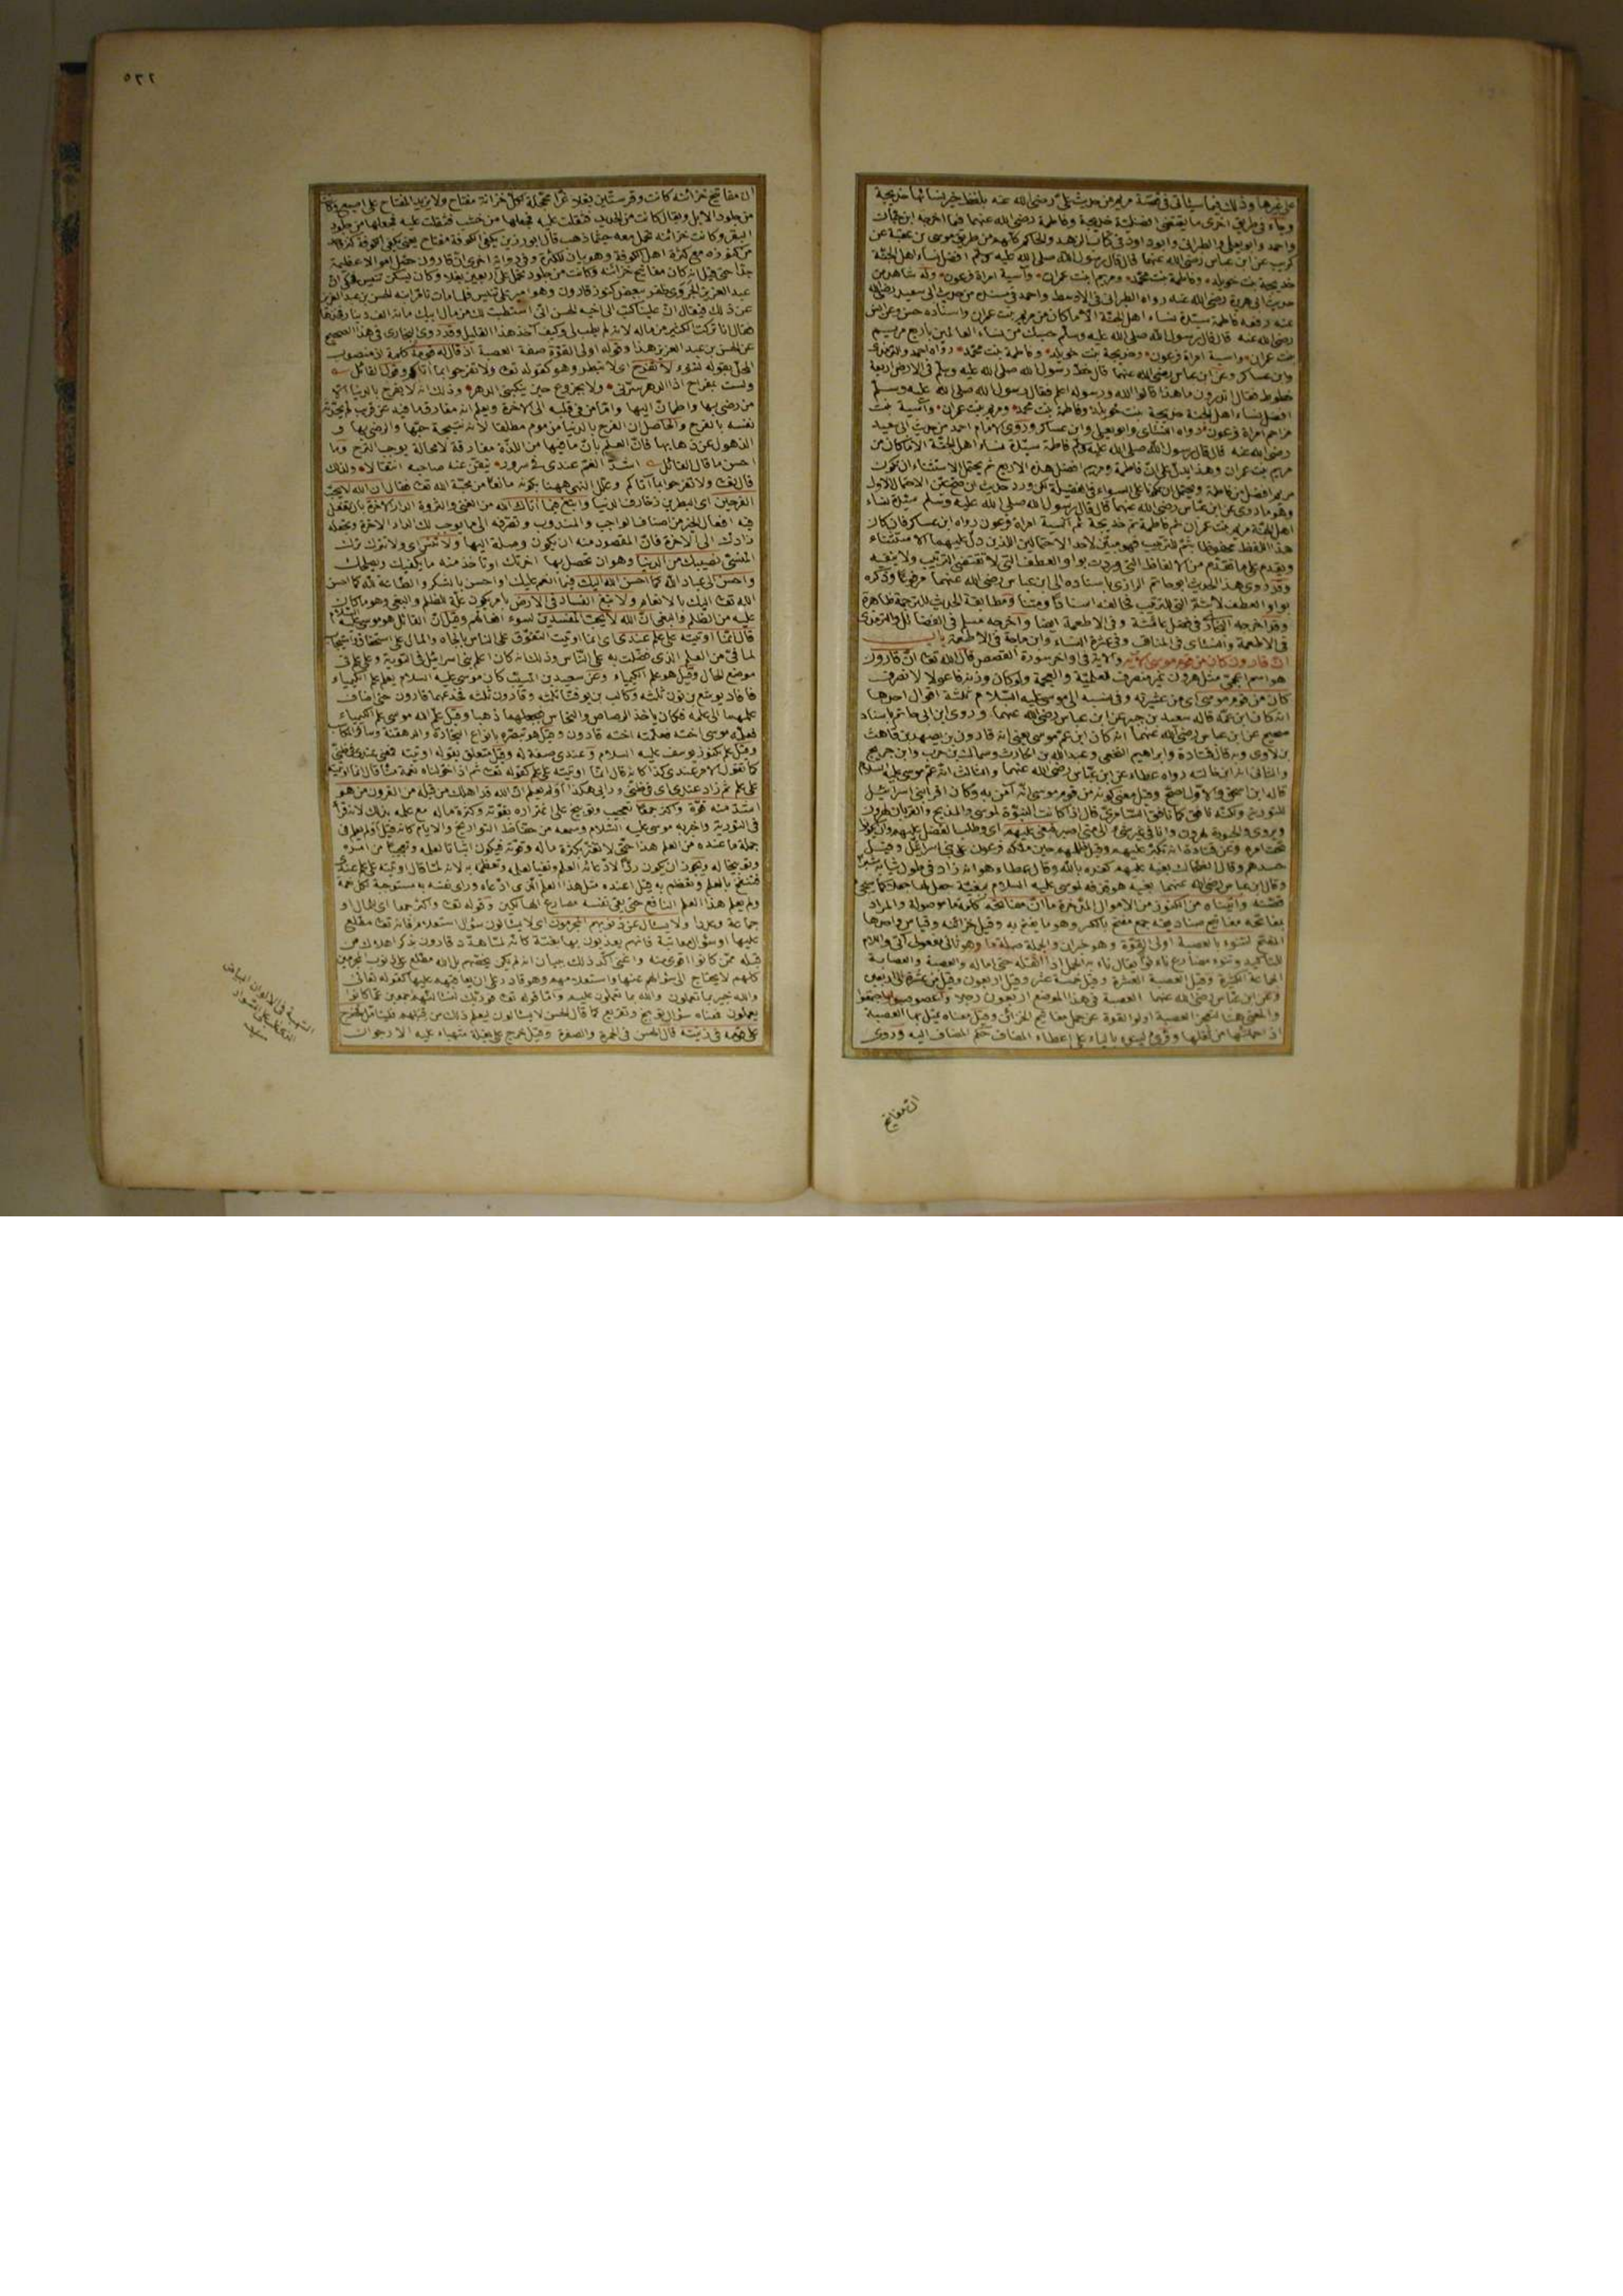 على غيرها وذلك فيما سيأتي في قصة مريم من حديث علي رضى الله عنه بلفظ خير نسائها خديجة
وجاء في طريق اخرى ما يقتضى افضلية خديجة وفاطمة رضى الله عنهما فيما اخرجه ابن حبان
واحمد وابو يعلى والطبرانى وابو داود في كتاب الزهد والحاكم كلهم من طريق موسى بن عقبة عن
كريب عن ابن عباس رضى الله عنهما قال قال رسول الله صلى الله عليه وسلم افضل نساء اهل الجنة
خديجة بنت خويلد وفاطمة بنت محمد ومريم ابنت عمران وآسية امرأة فرعون وله شاهد من
حديث ابى هريرة رضى الله عنه رواه الطبرانى فى الاوسط واحمد فى مسنده من حديث ابى سعيد رضى الله
عنه رفعه فاطمة سيدة نساء اهل الجنة الا ما كان من مريم بنت عمران واسناده حسن وعن انس
رضى الله عنه قال قال رسول الله صلى الله عليه وسلم حسبك من نساء العالمين باربع مريم
بنت عمران وآسية امرأة فرعون وخديجة بنت خويلد وفاطمة بنت محمد رواه احمد والترمذى
وابن عساكر وعن ابن عباس رضى الله عنهما قال خط رسول الله صلى الله عليه وسلم فى الارض اربعة
خطوط فقال اتدرون ما هذا قالوا الله ورسوله اعلم فقال رسول الله صلى الله عليه وسلم
افضل نساء اهل الجنة خديجة بنت خويلد وفاطمة بنت محمد ومريم بنت عمران وآسية بنت
مزاحم امرأة فرعون رواه النسائى وابو يعلى وابن عساكر وروى الامام احمد من حديث ابى سعيد
رضى الله عنه قال قال رسول الله صلى الله عليه وسلم فاطمة سيدة نساء اهل الجنة الا ما كان من
مريم بنت عمران وهذا يدل على ان فاطمة ومريم افضل هذه الاربع ثم يحتمل الاستثناء ان تكون
مريم افضل من فاطمة ويحتمل ان تكونا على السواء فى الفضيلة لكن ورد حديث ان صح عين الاحتمال الاول
وهو ما روى عن ابن عباس رضى الله عنهما قال قال رسول الله صلى الله عليه وسلم سيدة نساء
اهل الجنة مريم بنت عمران ثم فاطمة ثم خديجة ثم آسية امرأة فرعون رواه ابن عساكر فان كان
هذا اللفظ محفوظا بثم للترتيب فهو مبين لاحد الاحتمالين اللذين دل عليهما الاستثناء
ويقدم على ما تقدم من الالفاظ التى وردت بواو العطف التى لا تقتضى الترتيب ولا تنفيه
وقد روى هذا الحديث ابو حاتم الرازى باسناده الى ابن عباس رضى الله عنهما مرفوعا وذكره
بواو العطف لا بثم التى للترتيب فخالفه اسنادا ومتنا ومطابقة الحديث للترجمة ظاهرة
وقد اخرجه البخارى فى فضل عائشة وفى الاطعمة ايضا واخرجه مسلم فى الفضائل والترمذى
فى الاطعمة والنسائى فى المناقب وفى عشرة النساء وابن ماجة فى الاطعمة باب
ان قارون كان من قوم موسى الآية والآية فى اواخر سورة القصص قال الله تعالى ان قارون
هو اسم اعجمى مثل هرون غير منصرف للعلمية والعجمة ولو كان وزنه فاعولا لانصرف
كان من قوم موسى اى من عشيرته وفى نسبه الى موسى عليه السلام ثلثة اقوال احدها
انه كان ابن عمه قاله سعيد بن جبير عن ابن عباس رضى الله عنهما وروى ابن ابى حاتم باسناد
صحيح عن ابن عباس رضى الله عنهما انه كان ابن عم موسى يعنى انه قارون بن يصهر بن قاهث
بن لاوى وبه قال قتادة وابراهيم النخعى وعبد الله بن الحارث وسماك بن حرب وابن جريج
والثانى انه ابن خالته رواه عطاء عن ابن عباس رضى الله عنهما والثالث انه عم موسى عليه السلام
قاله ابن اسحق والاول اصح وقيل معنى كونه من قوم موسى انه آمن به وكان اقرأ بنى اسرائيل
للتورية ولكنه نافق كما نافق السامرى قال اذا كانت النبوة لموسى والمذبح والقربان لهرون
تحت امره وعن قتادة انه تكبر عليهم وقيل ظلمهم حين ملكه فرعون على بنى اسرائيل وقيل
حسدهم وقال الضحاك بغيه عليهم كفره بالله وقال عطاء هو انه زاد فى طول ثيابه شبرا
قصته وآتيناه من الكنوز من الاموال المدخرة ما ان مفاتحه كلمة ما موصولة والمراد
بمفاتحه مفاتيح صناديقه جمع مفتح بالكسر وهو ما يفتح به وقيل خزائنه وقياس واحدها
المفتح لتنوء بالعصبة اولى القوة وهو خبر ان والجملة صلة ما وهو ثانى مفعولى آتى واللام
للتأكيد وتنوء مضارع ناء يقال ناء به الحمل اذا اثقله حتى اماله والعصبة والعصابة
الجماعة الكثيرة وقيل العصبة العشرة وقيل خمسة عشر وقيل اربعون وقيل من عشرة الى اربعين
وعن ابن عباس رضى الله عنهما العصبة فى هذا الموضع اربعون رجلا واعصوصبوا اجتمعوا
والمعنى هنا لتعجز العصبة اولوا القوة عن حمل مفاتيح الخزائن وقيل معناه تميل بها العصبة
اذا حملتها من ثقلها وقرئ لينوء بالياء على اعطاء المضاف حكم المضاف اليه وروى
ان مفاتيح
٢٢٥
ان مفاتيح خزائنه كانت وقر ستين بغلا غرا محجلة لكل خزانة مفتاح ولا يزيد المفتاح على اصبع وكانت
من جلود الابل ويقال كانت من الحديد فثقلت عليه فجعلها من خشب فثقلت عليه فجعلها من جلود
البقر وكانت خزائنه تحمل معه حيثما ذهب قال ابو رزين يكفى الكوفة مفتاح يعنى يكفى الكوفة كنز واحد
من كنوزه مع كثرة اهل الكوفة وهو بيان للكثرة وفى رواية اخرى ان قارون حصل اموالا عظيمة
جدا حتى قيل انه كان مفاتيح خزائنه وكانت من جلود تحمل على اربعين بغلا وكان يسكن تنيس فحكى ان
عبد العزيز الجروى ظفر ببعض كنوز قارون وهو امير على تنيس فلما مات تأمر ابنه
فقال انا تركت الكثير من ماله لانه لم يطب لى وكيف آخذ هذا القليل وقد روى البخارى فى هذا الصحيح
عن الحسن بن عبد العزيز هذا وقوله اولى القوة صفة العصبة اذ قال له قومه كلمة اذ منصوب
المحل بقوله لتنوء لا تفرح اى لا تبطر وهو كقوله تعالى ولا تفرحوا بما آتاكم وقول القائل
ولست بمفراح اذا الدهر سرنى ولا بجزوع حين ينكبنى الدهر وذلك انه لا يفرح بالدنيا الا
من رضى بها واطمأن اليها واما من فى قلبه الى الآخرة ويعلم انه مفارق ما فيه عن قرب لم تحدثه
نفسه بالفرح والحاصل ان الفرح بالدنيا مذموم مطلقا لانه نتيجة حبها والرضى بها و
الذهول عن ذهابها فان العلم بان ما فيها من اللذة مفارقة لا محالة يوجب الترح وما
احسن ما قال القائل اشد الغم عندى فى سرور تيقن عنه صاحبه انتقالا ولذلك
قال تعالى ولا تفرحوا بما آتاكم وعلل النهى ههنا بكونه مانعا من محبة الله تعالى فقال ان الله لا يحب
الفرحين اى البطرين بزخارف الدنيا وابتغ فيما آتاك الله من الغنى والثروة الدار الآخرة بان تفعل
فيه افعال الخير من اصناف الواجب والمندوب وتصرفه الى ما يوجب لك الدار الآخرة وتجعله
زادك الى الآخرة فان المقصود منه ان يكون وصلة اليها ولا تنس اى ولا تترك ترك
المنسى نصيبك من الدنيا وهو ان تحصل بها آخرتك او تأخذ منه ما يكفيك ويصلحك
واحسن الى عباد الله كما احسن الله اليك فيما انعم عليك او احسن بالشكر والطاعة لله كما احسن
الله تعالى اليك بالانعام ولا تبغ الفساد فى الارض بامر يكون علة للظلم والبغى وهو ما كان
عليه من الظلم والبغى ان الله لا يحب المفسدين لسوء افعالهم وقيل ان القائل هو موسى عليه السلام
قال انما اوتيته على علم عندى اى انما اوتيت التفوق على الناس بالجاه والمال على استحقاق
لما فى من العلم الذى فضلت به على الناس وذلك انه كان اعلم بنى اسرائيل فى التورية وعلى علم فى
موضع الحال وقيل هو علم الكيمياء وعن سعيد بن المسيب كان موسى عليه السلام يعلم علم الكيمياء
فافاد يوشع بن نون ثلثه وكالب بن يوفنا ثلثه وقارون ثلثه فخدعهما قارون حتى اضاف
علمهما الى علمه فكان يأخذ الرصاص والنحاس فيجعلهما ذهبا وقيل علم الله موسى علم الكيمياء
فعلمه موسى اخته فعلمته اخته قارون وقيل هو تبصره بانواع التجارة والدهقنة وسائر المكاسب
وقيل علم كنوز يوسف عليه السلام وعندى صفة له وقيل متعلق بقوله اوتيته فمعنى عندى فى ظنى
كما تقول الامر عندى كذا كانه قال انما اوتيته على علم كقوله تعالى ثم اذا خولناه نعمة منا قال انما اوتيته
على علم ثم زاد عندى اى فى ظنى ورأيى هكذا اولم يعلم ان الله قد اهلك من قبله من القرون من هو
اشد منه قوة واكثر جمعا تعجيب وتوبيخ على اغتراره بقوته وكثرة ماله مع علمه بذلك لانه قرأ
فى التورية واخبر به موسى عليه السلام وسمعه من حفاظ التواريخ والايام كانه قيل اولم يعلم فى
جملة ما عنده من العلم هذا حتى لا يغتر بكثرة ماله وقوته فيكون اثباتا لعلمه
وتوبيخا له ويجوز ان يكون ردا لادعائه العلم ونفيا لعلمه وتعظمه به لانه لما قال اوتيته على علم عندى
فتنفج بالعلم وتعظم به قيل اعنده مثل هذا العلم الذى ادعاه ورأى نفسه به مستوجبة لكل نعمة
ولم يعلم هذا العلم النافع حتى يقى نفسه مصارع الهالكين وقوله تعالى واكثر جمعا اى للمال او
جماعة وعددا ولا يسئال عن ذنوبهم المجرمون اى لا يسئالون سؤال استعلام فانه تعالى مطلع
عليها او سؤال معاتبة فانهم يعذبون بها بغتة كانه لما هدد قارون بذكر اهلاك من
قبله ممن كانوا اقوى منه واغنى اكد ذلك ببيان انه لم يكن يخصهم بل الله مطلع على ذنوب المجرمين
كلهم لا يحتاج الى سؤالهم عنها واستعلامهم وهو قادر على ان يعاقبهم عليها كقوله تعالى
والله خبير بما تعملون والله بما تعملون عليم واما قوله تعالى فوربك لنسئالنهم اجمعين عما كانوا
يعملون فمعناه سؤال توبيخ وتقريع كما قال الحسن لا يسئالون ليعلم ذلك من قبلهم فخرج
على قومه فى زينته قال الحسن فى الحمرة والصفرة وقيل خرج على بغلة شهباء عليه الارجوان
الشهبة فى الالوان البياض
الغالب على السواد